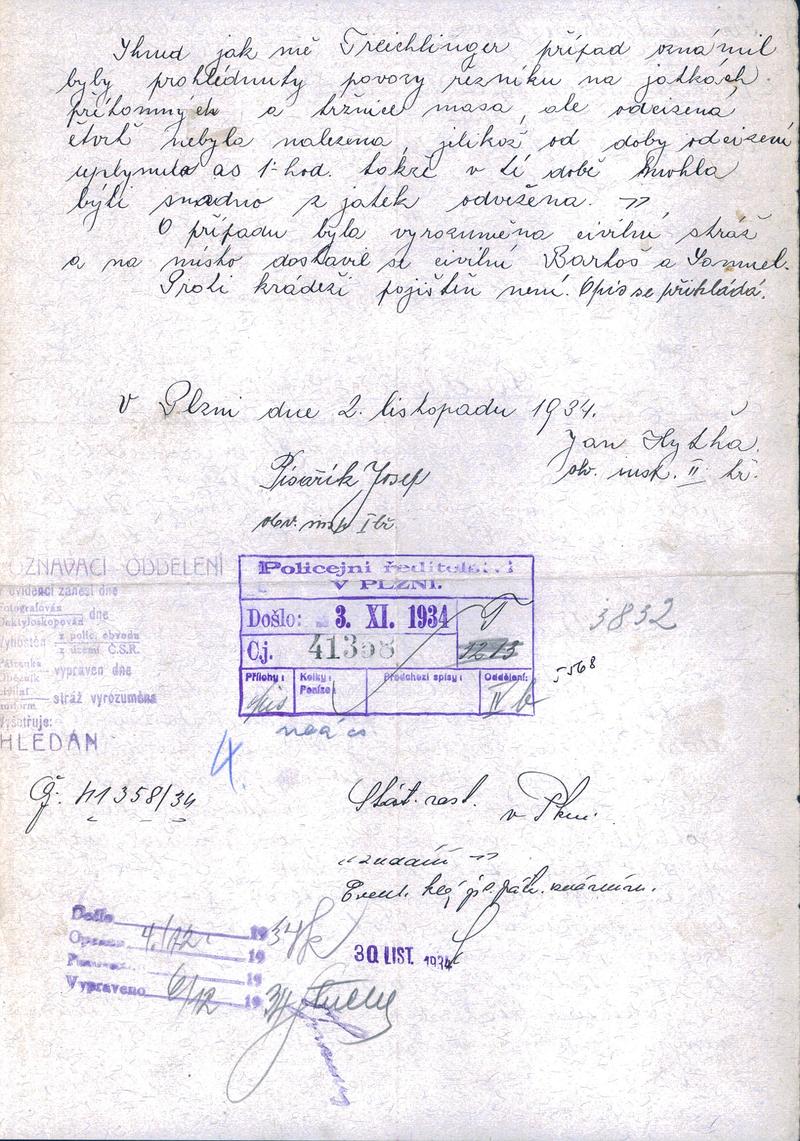 Ihned jak mě Treichlinger případ oznámil
byly prohlédnuty povozy řezníku na jatkách
přítomných a tržnice masa, ale odcizená
čtvrť nebyla nalezena, jelikož od doby odcizení
uplynula as 1 hod. takže v té době mohla
býti snadno z jatek odvežena.
O případu byla vyrozuměna civilní stráž
a na místo dostavil se civilní Bartoš a Samuel.
Proti krádeži pojištěn není. Opis se přikládá.
V Plzni dne 2. listopadu 1934.
Jan Hytha
obv. insp. II tř.
Písařík Josef
obv. insp I tř.
OZNAVACÍ ODDĚLENÍ
evidenci zanesl dne
Fotografován
Daktyloskopován dne
Vyhoštěn z polic. obvodu
z území Č.S.R.
Pátranka
Oběžník vypraven dne
civilní
uniform stráž vyrozuměna
HLEDÁN
Policejní ředitelství
V PLZNI.
Došlo: 3. XI. 1934
Čj. 41358 1213
Přílohy: Kolky: Předchozí spisy: Oddělení:
Peníze:
opis IV b
3832
5568
4.
Č. 41358/34
Stát. zast.
v Plzni.
30 LIST. 1934
Došlo 19 34
4/12 19
19
Vypraveno 6/12 19 34